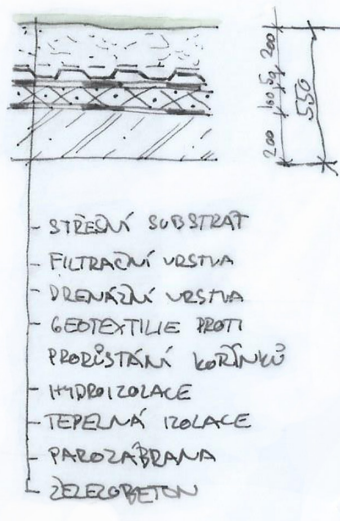 200
50
100
200
550
STŘEŠNÍ SUBSTRÁT
FILTRAČNÍ VRSTVA
DRENÁŽNÍ VRSTVA
GEOTEXTILIE PROTI
PRORŮSTÁNÍ KOŘÍNKŮ
HYDROIZOLACE
TEPELNÁ IZOLACE
PAROZÁBRANA
ŽELEZOBETON